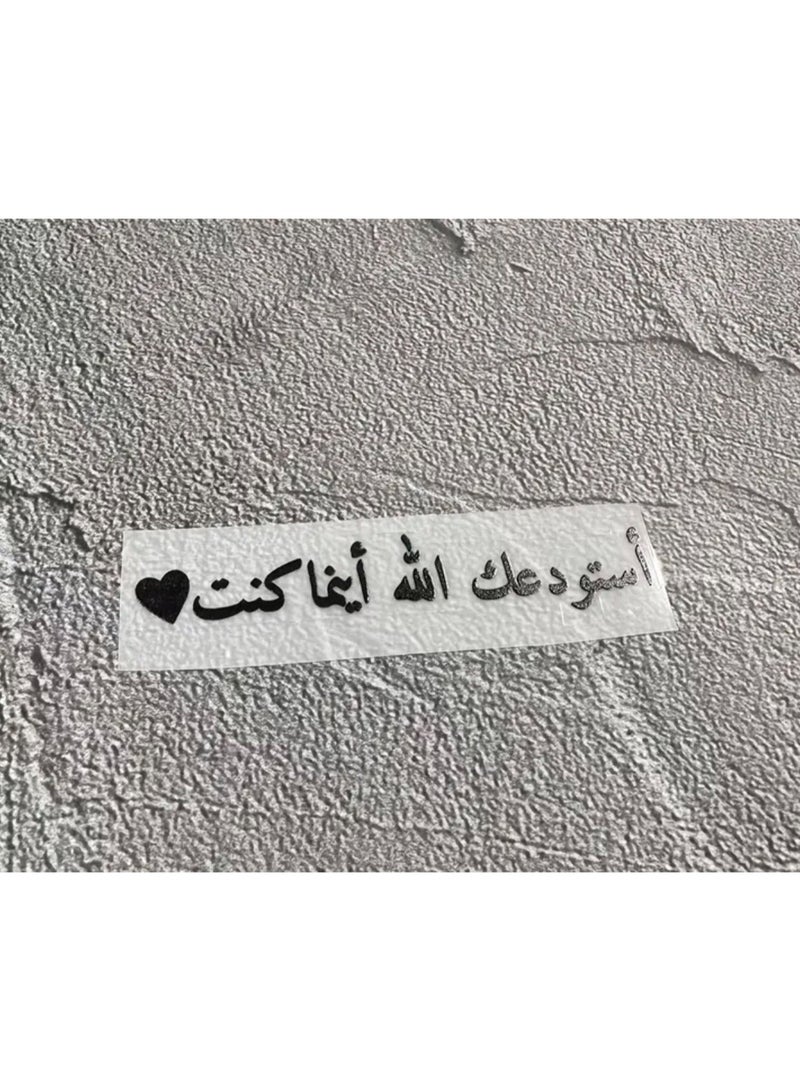 أستودعك الله أينما كنت🖤